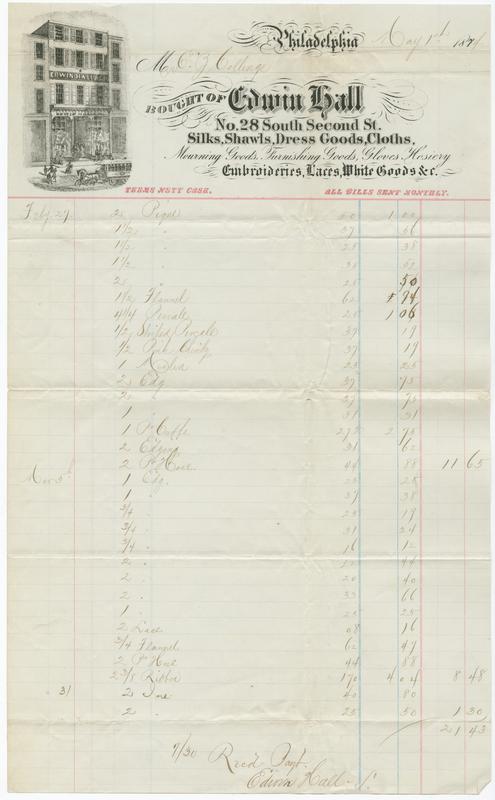 EDWIN HALL
Philadelphia May 1st 1874
M E Z Collings
BOUGHT OF Edwin Hall
No. 28 South Second St.
Silks, Shawls, Dress Goods, Cloths,
Mourning Goods, Furnishing Goods, Gloves, Hosiery
Embroideries, Laces, White Goods &c.
TERMS NETT CASH. ALL BILLS SENT MONTHLY.
Feby 27 2 Pique 50 1 00
1 1/2 " 37 56
1 1/2 " 25 38
1 1/2 " 35
2 " 50
1 1/2 Flannel 62 94
4 1/4 Percale 25 1 06
1/2 Striped Percale 37 19
1/2 Pink 37 19
1 25 25
2 Edg 37 75
2 " 37 75
1 " 31 31
1 Pr Cuffs 275 2 75
2 Edging 31 62
2 Pr Hose 44 88 11 65
Mar 5th 1 Edg 25 25
1 " 37 38
3/4 " 25 19
3/4 " 31 24
3/4 " 16 12
2 " 22 44
2 " 20 40
2 " 33 66
1 " 25 25
2 Lace 08 16
3/4 Flannel 62 47
2 Pr Hose 44 88
2 3/8 Ribbon 170 4 04 8 48
" 31 2 40 80
2 " 25 50 1 30
21 43
Rec'd Payt.
Edwin Hall